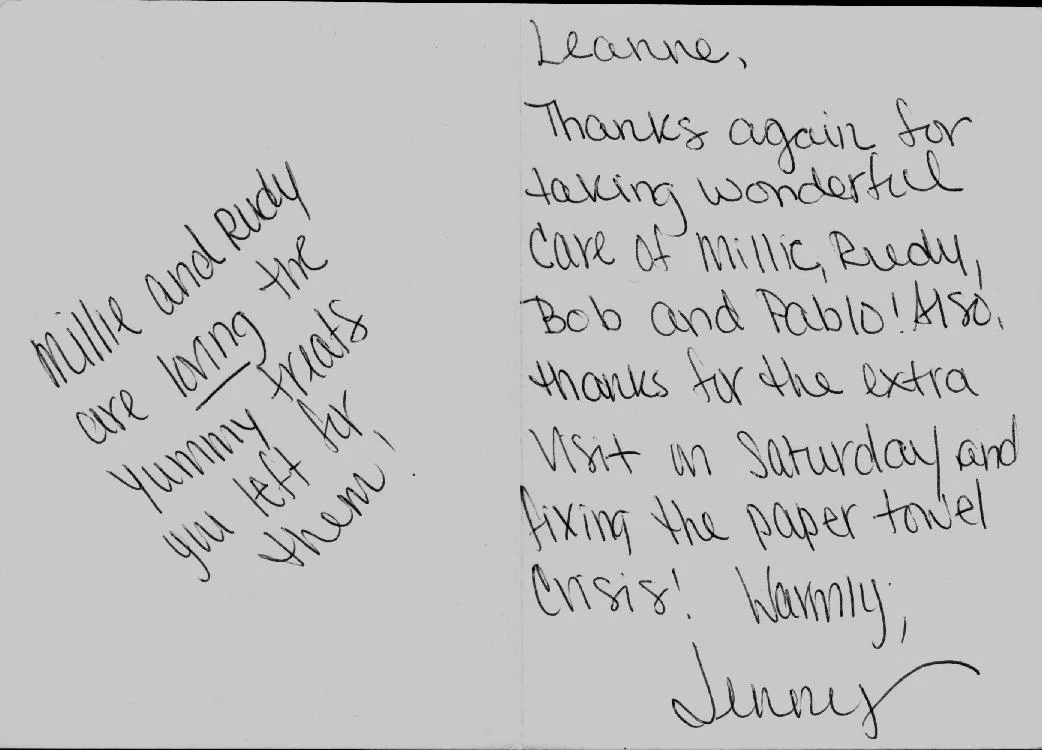 Millie and Rudy
are loving the
yummy treats
you left for
them!
Leanne,
Thanks again for
taking wonderful
care of Millie, Rudy,
Bob and Pablo! Also,
thanks for the extra
visit on Saturday and
fixing the paper towel
crisis! Warmly,
Jenny